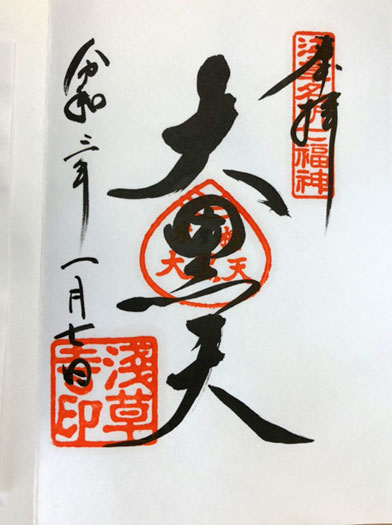 奉拝
浅草名所七福神
大黒天
令和三年一月七日
淺草
寺印